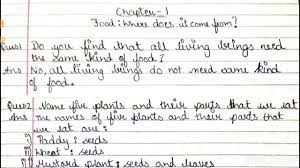 Chapter-1
Food: Where does it come from?
Ques1 Do you find that all living beings need
the same kind of food?
Ans No, all living beings do not need same kind
of food.
Ques2 Name five plants and their parts that we eat
Ans The names of five plants and their parts that
we eat are:
i) Paddy: seeds
ii) Wheat: seeds
iii) Mustard plant: seeds and leaves